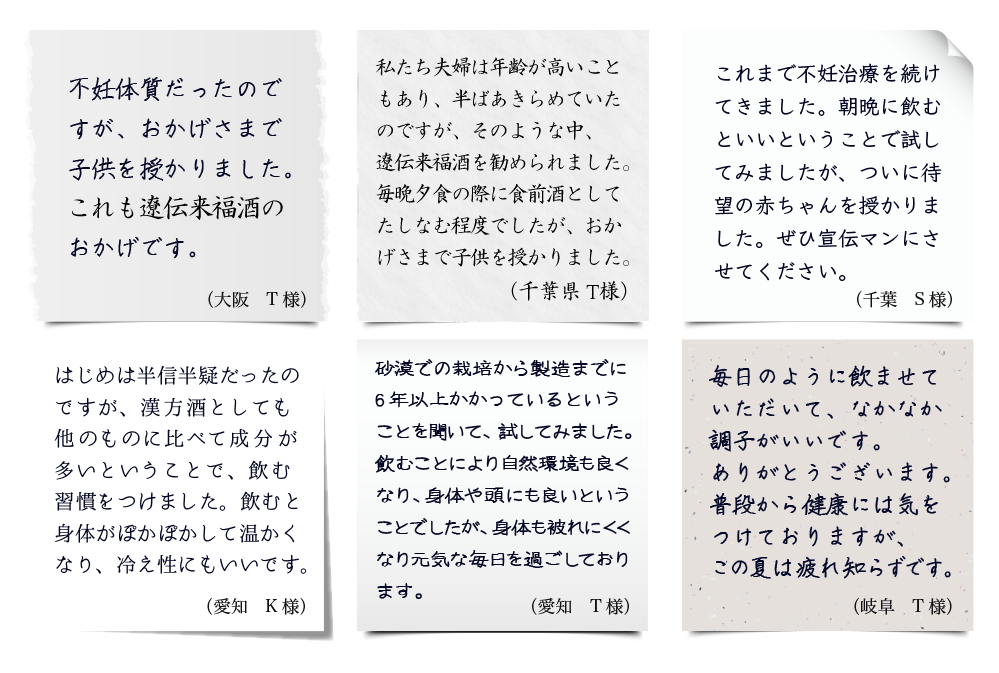 不妊体質だったので
すが、おかげさまで
子供を授かりました。
これも遼伝来福酒の
おかげです。
（大阪　T様）
私たち夫婦は年齢が高いこと
もあり、半ばあきらめていた
のですが、そのような中、
遼伝来福酒を勧められました。
毎晩夕食の際に食前酒として
たしなむ程度でしたが、おか
げさまで子供を授かりました。
（千葉県 T様）
これまで不妊治療を続け
てきました。朝晩に飲む
といいということで試し
てみましたが、ついに待
望の赤ちゃんを授かりま
した。ぜひ宣伝マンにさ
せてください。
（千葉　S様）
はじめは半信半疑だったの
ですが、漢方酒としても
他のものに比べて成分が
多いということで、飲む
習慣をつけました。飲むと
身体がぽかぽかして温かく
なり、冷え性にもいいです。
（愛知　K様）
砂漠での栽培から製造までに
6年以上かかっているという
ことを聞いて、試してみました。
飲むことにより自然環境も良く
なり、身体や頭にも良いという
ことでしたが、身体も被れにくく
なり元気な毎日を過ごしており
ます。
（愛知　T様）
毎日のように飲ませて
いただいて、なかなか
調子がいいです。
ありがとうございます。
普段から健康には気を
つけておりますが、
この夏は疲れ知らずです。
（岐阜　T様）